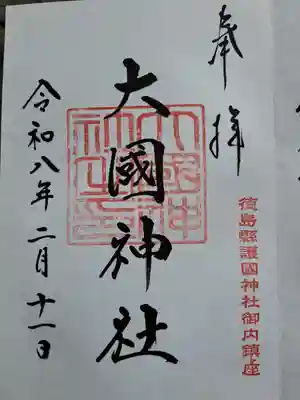 奉拝
徳島縣護國神社御内鎮座
大國神社
令和八年二月十一日